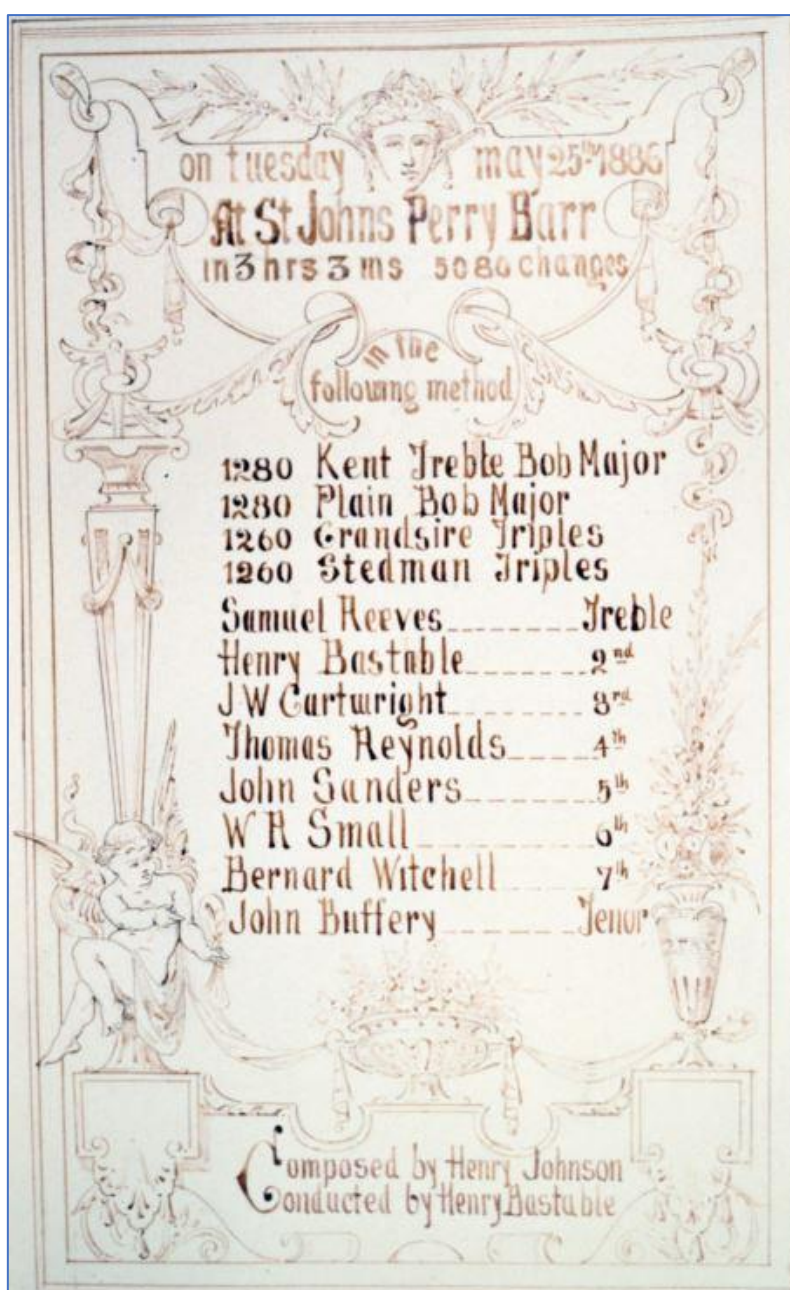 on tuesday may 25th 1886
At St Johns Perry Barr
in 3 hrs 3 ms 5080 changes
in the
following method
1280 Kent Treble Bob Major
1280 Plain Bob Major
1260 Grandsire Triples
1260 Stedman Triples
Samuel Reeves Treble
Henry Bastable 2nd
J W Cartwright 3rd
Thomas Reynolds 4th
John Sanders 5th
W R Small 6th
Bernard Witchell 7th
John Buffery Tenor
Composed by Henry Johnson
Conducted by Henry Bastable